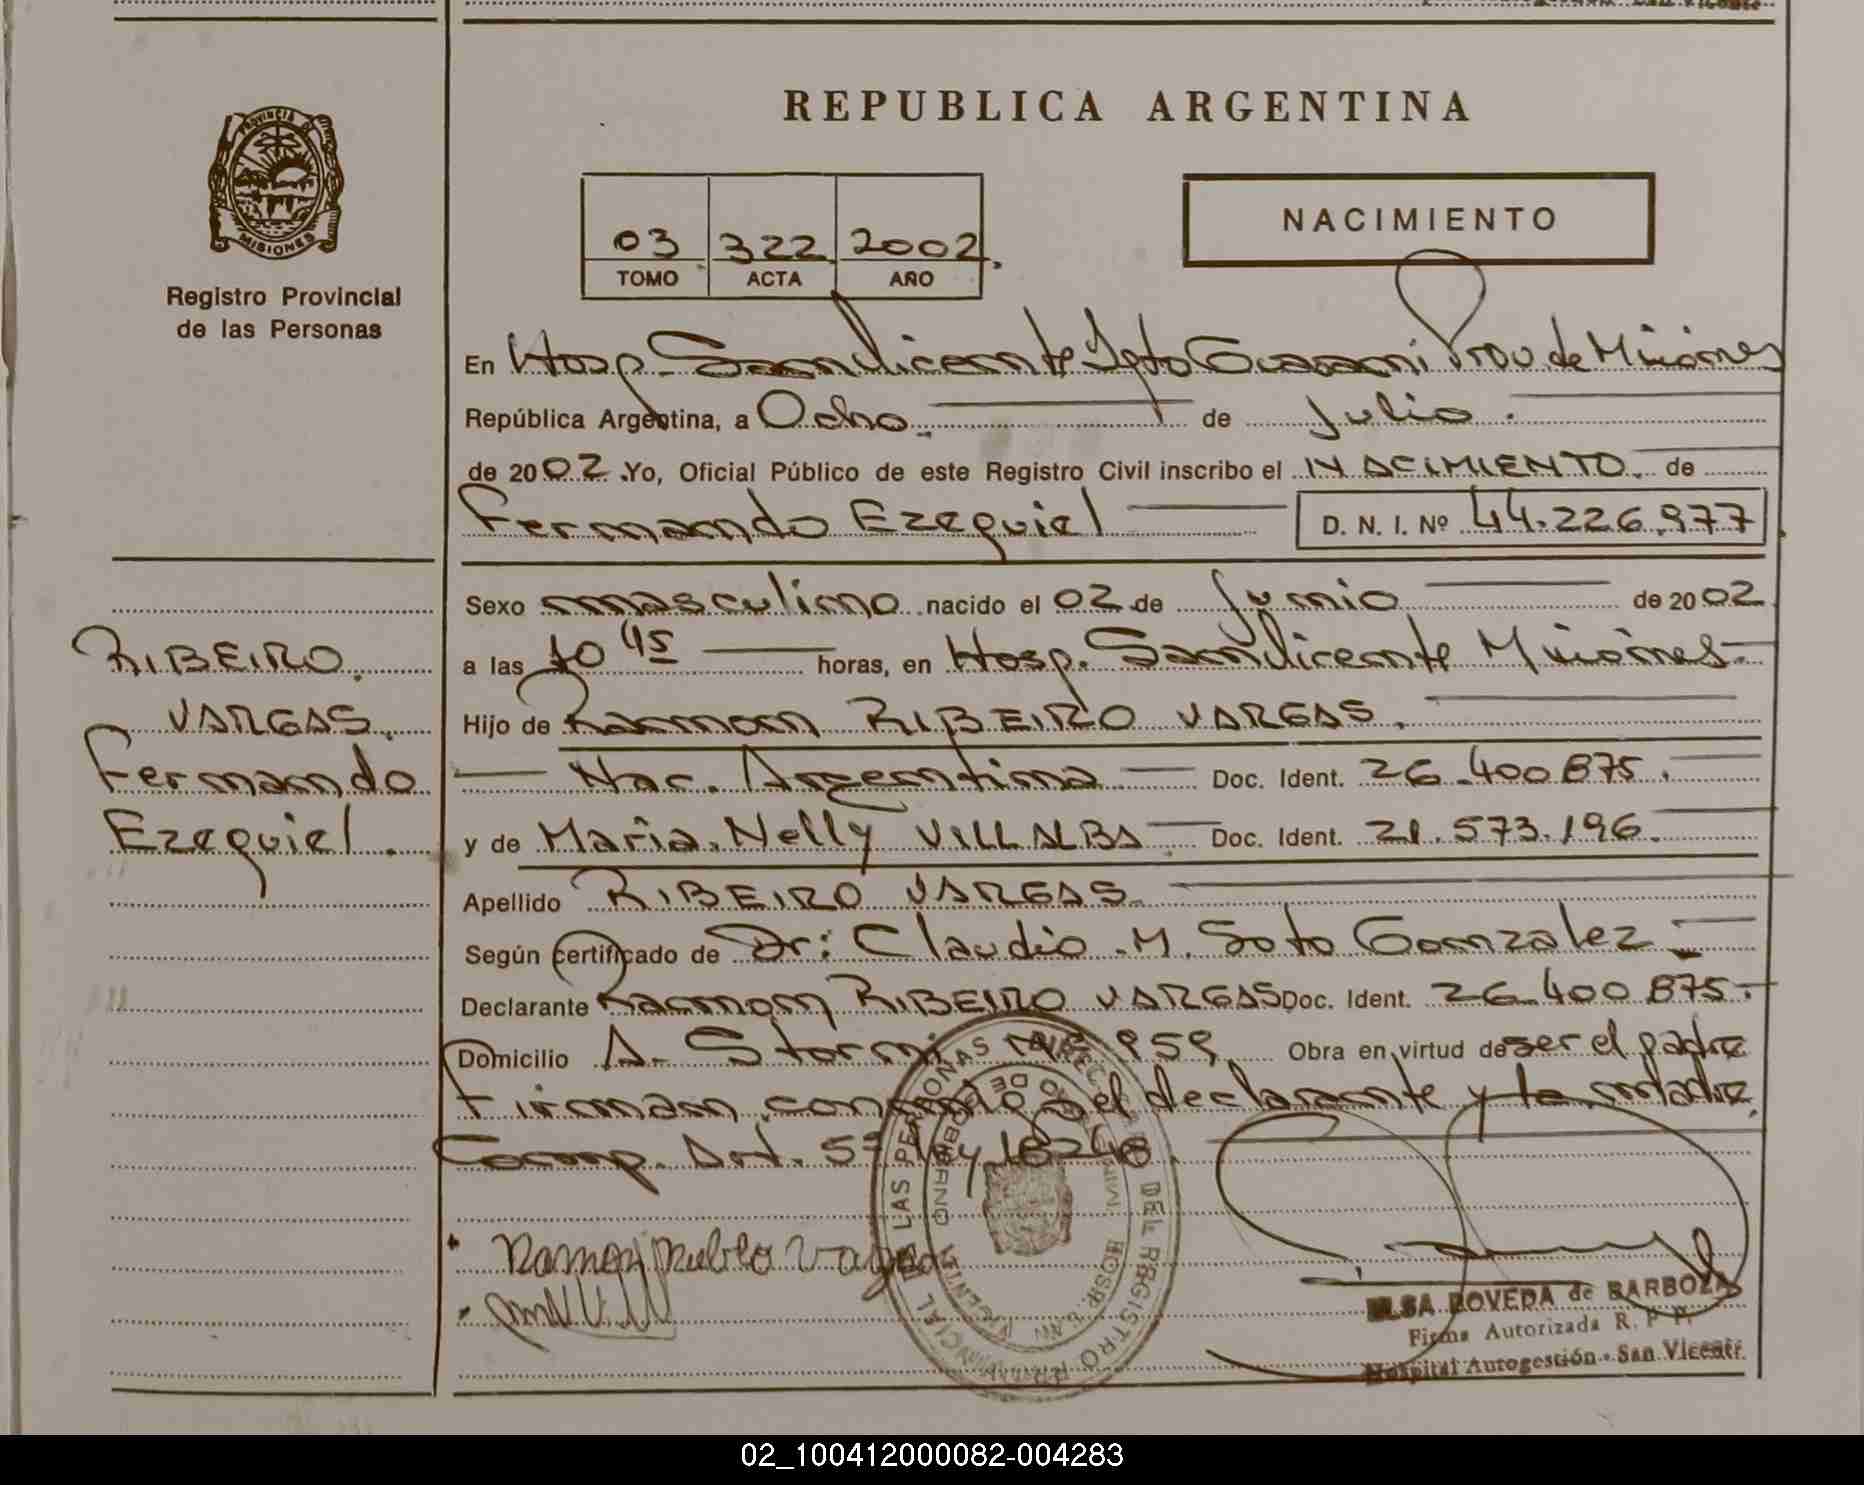 REPUBLICA ARGENTINA
PROVINCIA DE
MISIONES
Registro Provincial
de las Personas
03 322 2002
TOMO ACTA AÑO
NACIMIENTO
En Hosp. San Vicente Dpto Guarani Prov. de Misiones
República Argentina, a Ocho de Julio.
de 2002 Yo, Oficial Público de este Registro Civil inscribo el NACIMIENTO de
Fernando Ezequiel D. N. I. Nº 44.226.977
Sexo masculino nacido el 02 de Junio de 2002
RIBEIRO
VARGAS
Fernando
Ezequiel.
a las 10 45 horas, en Hosp. San Vicente Misiones
Hijo de Ramon RIBEIRO VARGAS.
Nac. Argentina Doc. Ident. 26.400.875.
y de Maria Nelly VILLALBA Doc. Ident. 21.573.196.
Apellido RIBEIRO VARGAS
Según certificado de Dr: Claudio M. Soto Gonzalez
Declarante Ramon RIBEIRO VARGAS Doc. Ident. 26.400.875.
Domicilio A. Storni Nº 959 Obra en virtud de ser el padre
Firman conmigo el declarante y la madre
Comp. Art. 5º Ley 18248
Ramon Vargas
ELSA POVEDA de BARBOZA
Firma Autorizada R. P. P.
Hospital Autogestión - San Vicente
02_100412000082-004283